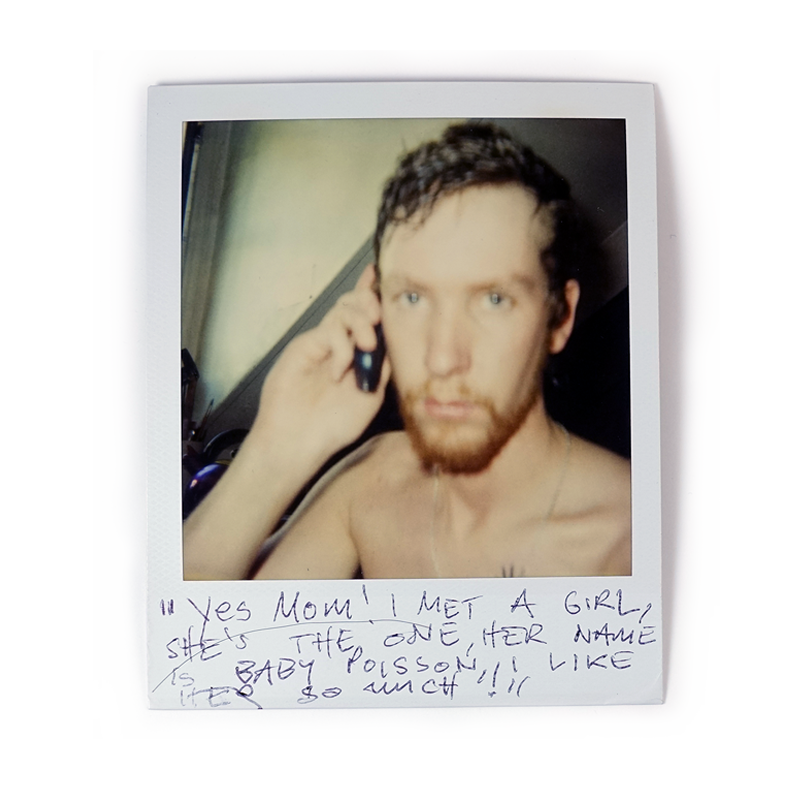 " Yes Mom! I MET A GIRL,
SHE'S THE ONE, HER NAME
IS BABY POISSON, I LIKE
HER SO MUCH !! "